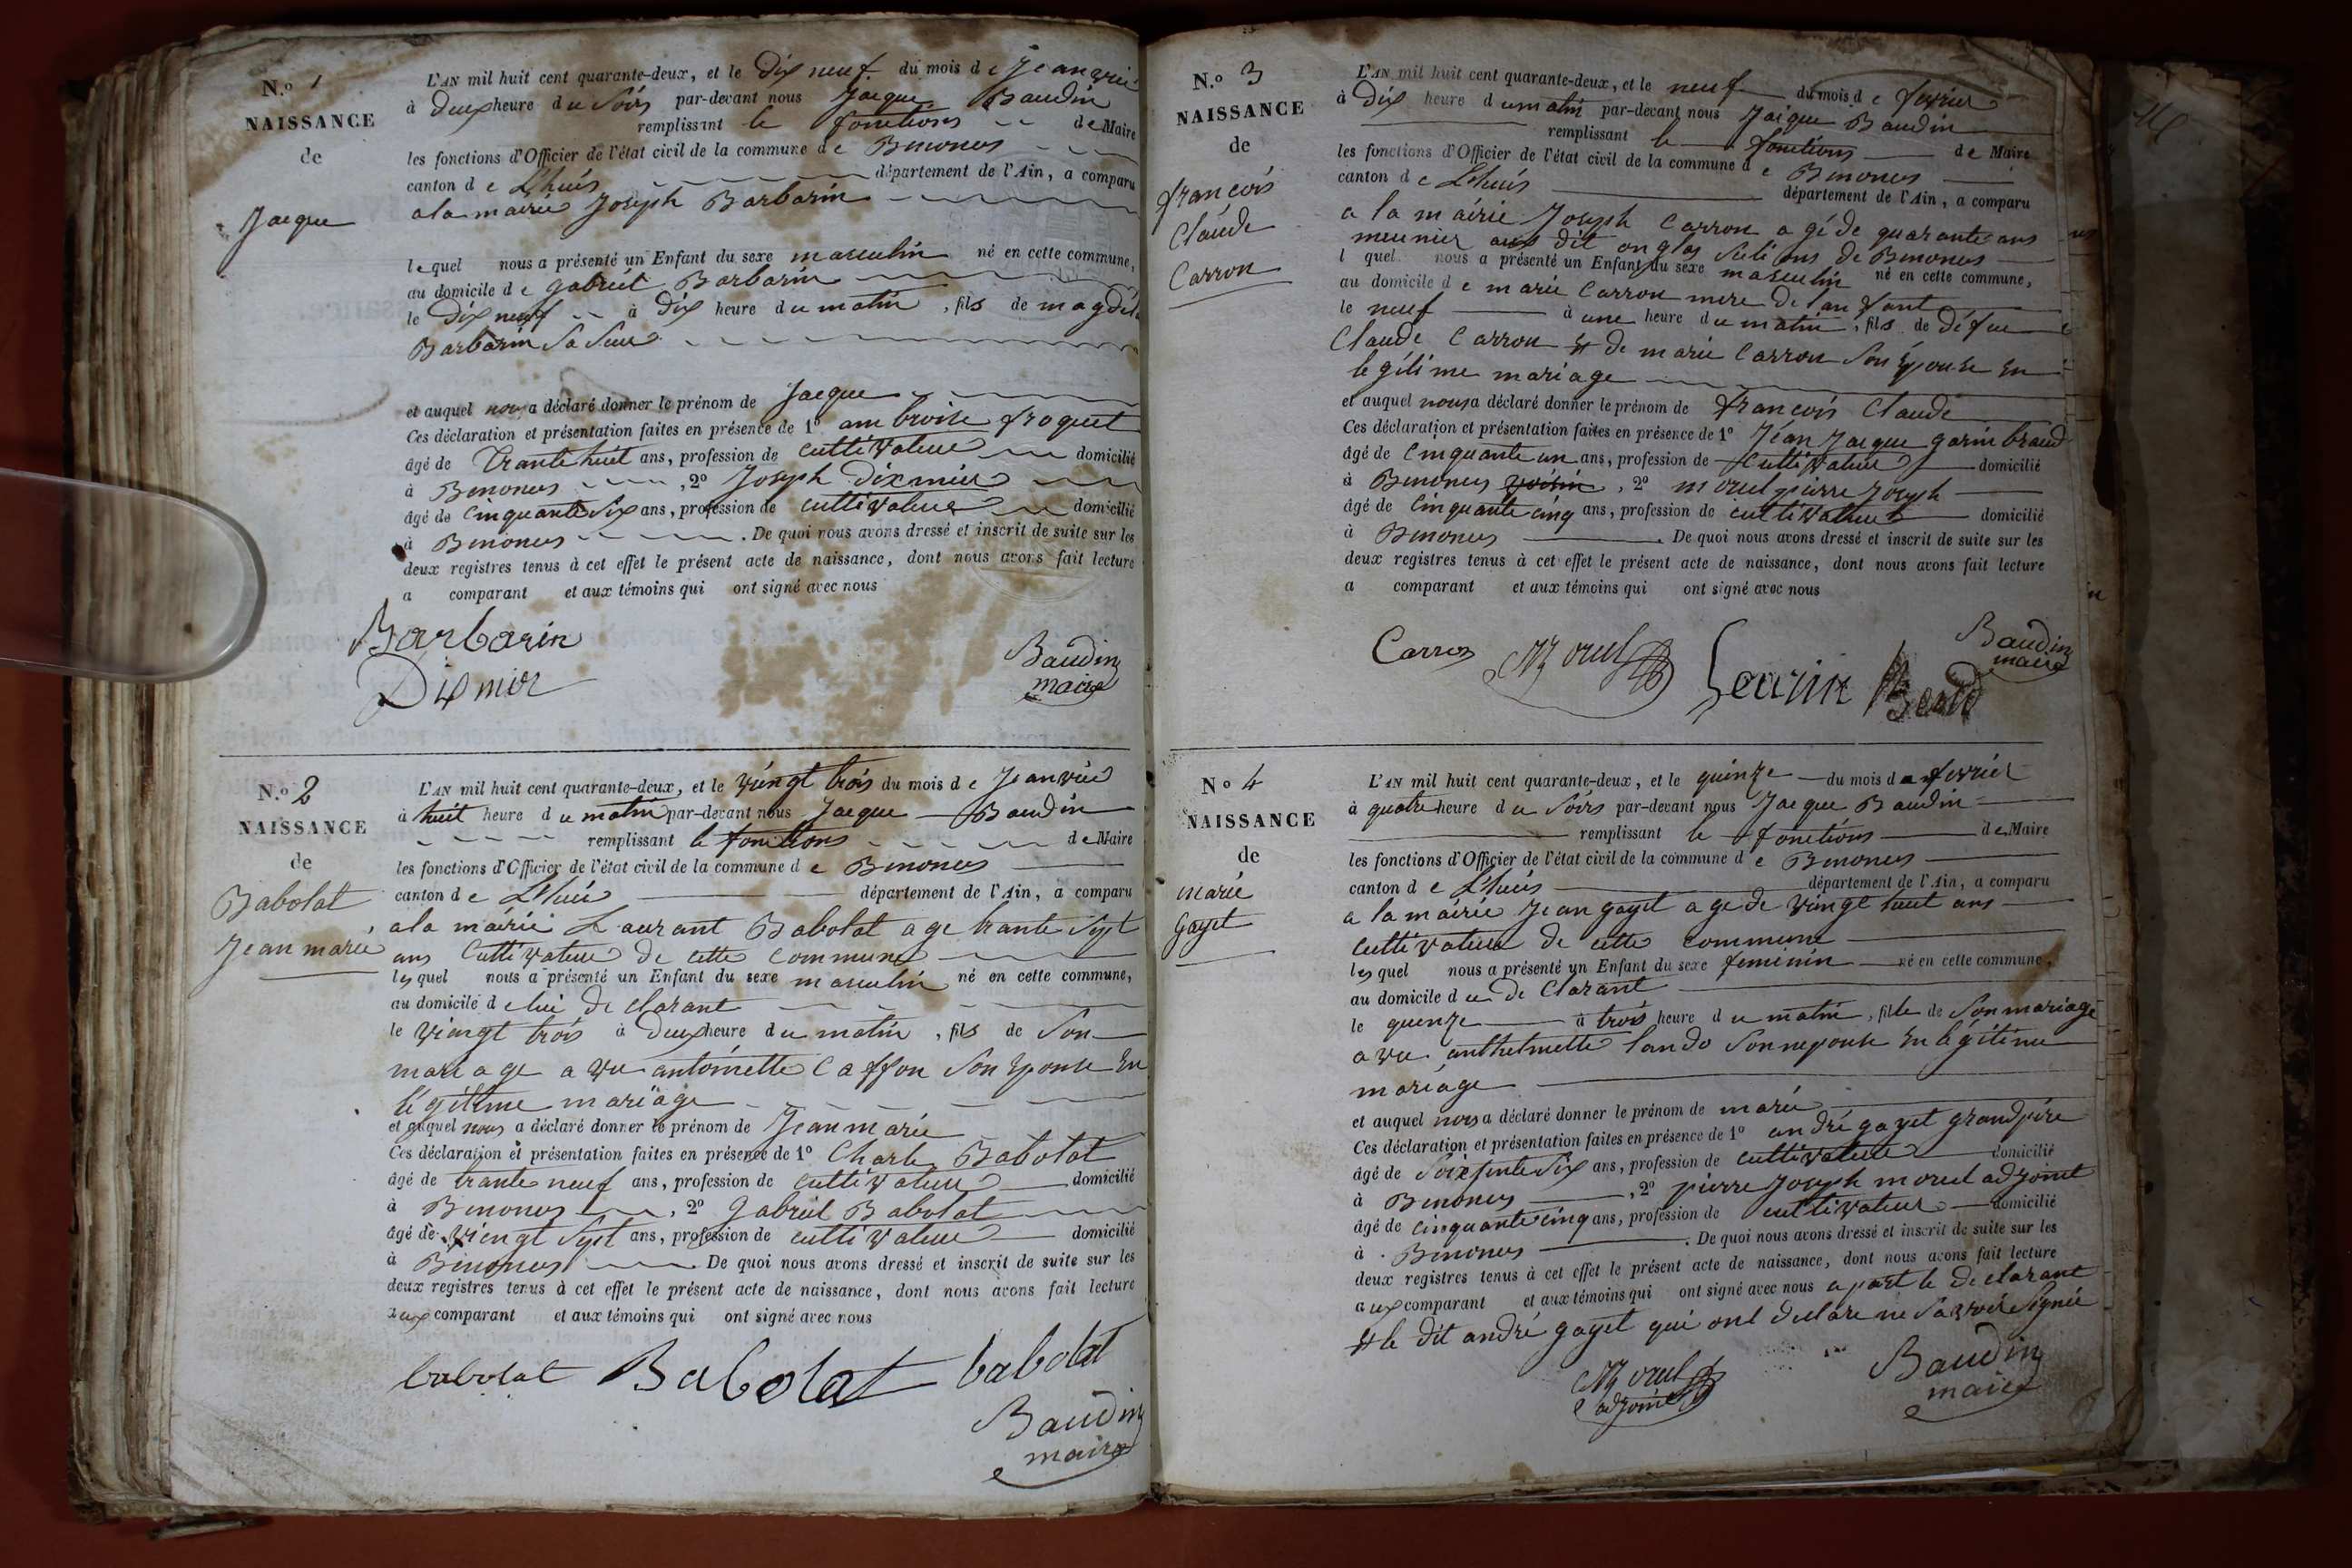 N.o 1
NAISSANCE
de
Jacque
L'AN mil huit cent quarante-deux, et le Dix neuf du mois de Jeanvié
à Deux heure du Soirs par-devant nous Jacque Baudin
remplissant le fonctions de Maire
les fonctions d'Officier de l'état civil de la commune de Benonces
canton de Lhuis département de l'Ain, a comparu
a la mairie Joseph Barbarin
lequel nous a présenté un Enfant du sexe masculin né en cette commune,
au domicile de gabriel Barbarin
le Dix neuf à Dix heure du matin, fils de magdel
Barbarin Sa Seur
et auquel nous a déclaré donner le prénom de Jacque
Ces déclaration et présentation faites en présence de 1o ambroise froquet
âgé de trante huit ans, profession de cultivateur domicilié
à Benonces, 2o Joseph Dixmier
âgé de Cinquante Six ans, profession de cultivateur domicilié
à Benonces. De quoi nous avons dressé et inscrit de suite sur les
deux registres tenus à cet effet le présent acte de naissance, dont nous avons fait lecture
a comparant et aux témoins qui ont signé avec nous
Barbarin
Dixmier
Baudin
maire
N.o 2
NAISSANCE
de
Babolat
Jean marie
L'AN mil huit cent quarante-deux, et le vingt trois du mois de Jeanvié
à huit heure du matin par-devant nous Jacque Baudin
remplissant le fonctions de Maire
les fonctions d'Officier de l'état civil de la commune de Benonces
canton de Lhuis département de l'Ain, a comparu
a la mairie Laurant Babolat age trante Sept
ans Cultivateur de cette Commune
lesquel nous a présenté un Enfant du sexe masculin né en cette commune,
au domicile de lui De clarant
le vingt trois à Deux heure du matin, fils de Son
mariage avu antoinette Caffon Son Epouse En
légitime mariage
et auquel nous a déclaré donner le prénom de Jean marie
Ces déclaration et présentation faites en présence de 1o Charle Babolat
âgé de trante neuf ans, profession de cultivateur domicilié
à Benonces, 2o Gabriel Babolat
âgé de vingt Sept ans, profession de cultivateur domicilié
à Benonces De quoi nous avons dressé et inscrit de suite sur les
deux registres tenus à cet effet le présent acte de naissance, dont nous avons fait lecture
aux comparant et aux témoins qui ont signé avec nous
babolat Babolat babolat
Baudin
maire
N.o 3
NAISSANCE
de
françois
Claude
Carron
L'AN mil huit cent quarante-deux, et le neuf du mois de fevrier
à Dix heure du matin par-devant nous Jacque Baudin
remplissant le fonctions de Maire
les fonctions d'Officier de l'état civil de la commune de Benonces
canton de Lhuis département de l'Ain, a comparu
a la mairie Joseph Carron agé de quarante ans
meunier aux dit de Benonces
lquel nous a présenté un Enfant du sexe masculin né en cette commune,
au domicile de marie Carron mere de lan fant
le neuf à une heure du matin, fils de défue
Claude Carron et de marie Carron Son Epouse En
légitime mariage
et auquel nous a déclaré donner le prénom de françois Claude
Ces déclaration et présentation faites en présence de 1o Jéan Jacque garin braud
âgé de Cinquante un ans, profession de Cultivateur domicilié
à Benonces voisin, 2o morel pierre Joseph
âgé de Cinquante cinq ans, profession de cultivateur domicilié
à Benonces. De quoi nous avons dressé et inscrit de suite sur les
deux registres tenus à cet effet le présent acte de naissance, dont nous avons fait lecture
a comparant et aux témoins qui ont signé avec nous
Carron Morel
Baudin
maire
No 4
NAISSANCE
de
marie
gayet
L'AN mil huit cent quarante-deux, et le quinze du mois de fevrier
à quatre heure du Soirs par-devant nous Jacque Baudin
remplissant le fonctions de Maire
les fonctions d'Officier de l'état civil de la commune de Benonces
canton de Lhuis département de l'Ain, a comparu
a la mairie Jean gayet age de vingt huit ans
cultivateur de cette commune
lesquel nous a présenté un Enfant du sexe feminin né en cette commune,
au domicile du De Clarant
le quinze à trois heure du matin, fille de Son mariage
avu anthelmette lando Son nepouse En légitime
mariage
et auquel nous a déclaré donner le prénom de marie
Ces déclaration et présentation faites en présence de 1o andré gayet grandpére
âgé de Soixsente Six ans, profession de cultivateur domicilié
à Benonces, 2o pierre Joseph morel adjoint
âgé de Cinquante Cinq ans, profession de cultivateur domicilié
à Benonces. De quoi nous avons dressé et inscrit de suite sur les
deux registres tenus à cet effet le présent acte de naissance, dont nous avons fait lecture
aux comparant et aux témoins qui ont signé avec nous apart le De clarant
et le dit andré gayet qui ont declare ne Savoir Signée
Morel
adjoint
Baudin
maire